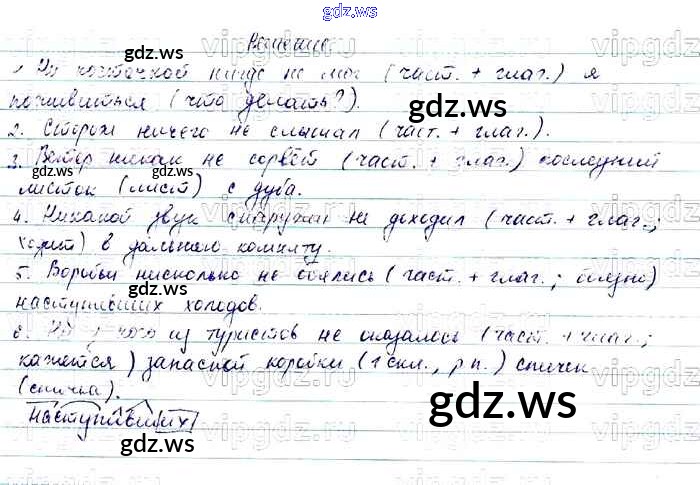 Решение.
1. Ни косточкой нигде не мог (част. + глаг.) я
поживиться (что делать?).
2. Сторож ничего не слышал (част. + глаг.).
3. Ветер никак не сорвёт (част. + глаг.) последний
листок (лист) с дуба.
4. Никакой звук снаружи не доходил (част. + глаг.;
ходит) в дальнюю комнату.
5. Воробьи нисколько не боялись (част. + глаг.; )
наступивших холодов.
6. Ни у кого из туристов не оказалось (част. + глаг.;
кажется) запасной коробки (1 скл., р.п.) спичек
(спичка).
наступивших
gdz.ws
gdz.ws
gdz.ws
gdz.ws
gdz.ws
gdz.ws
gdz.ws
gdz.ws
gdz.ws